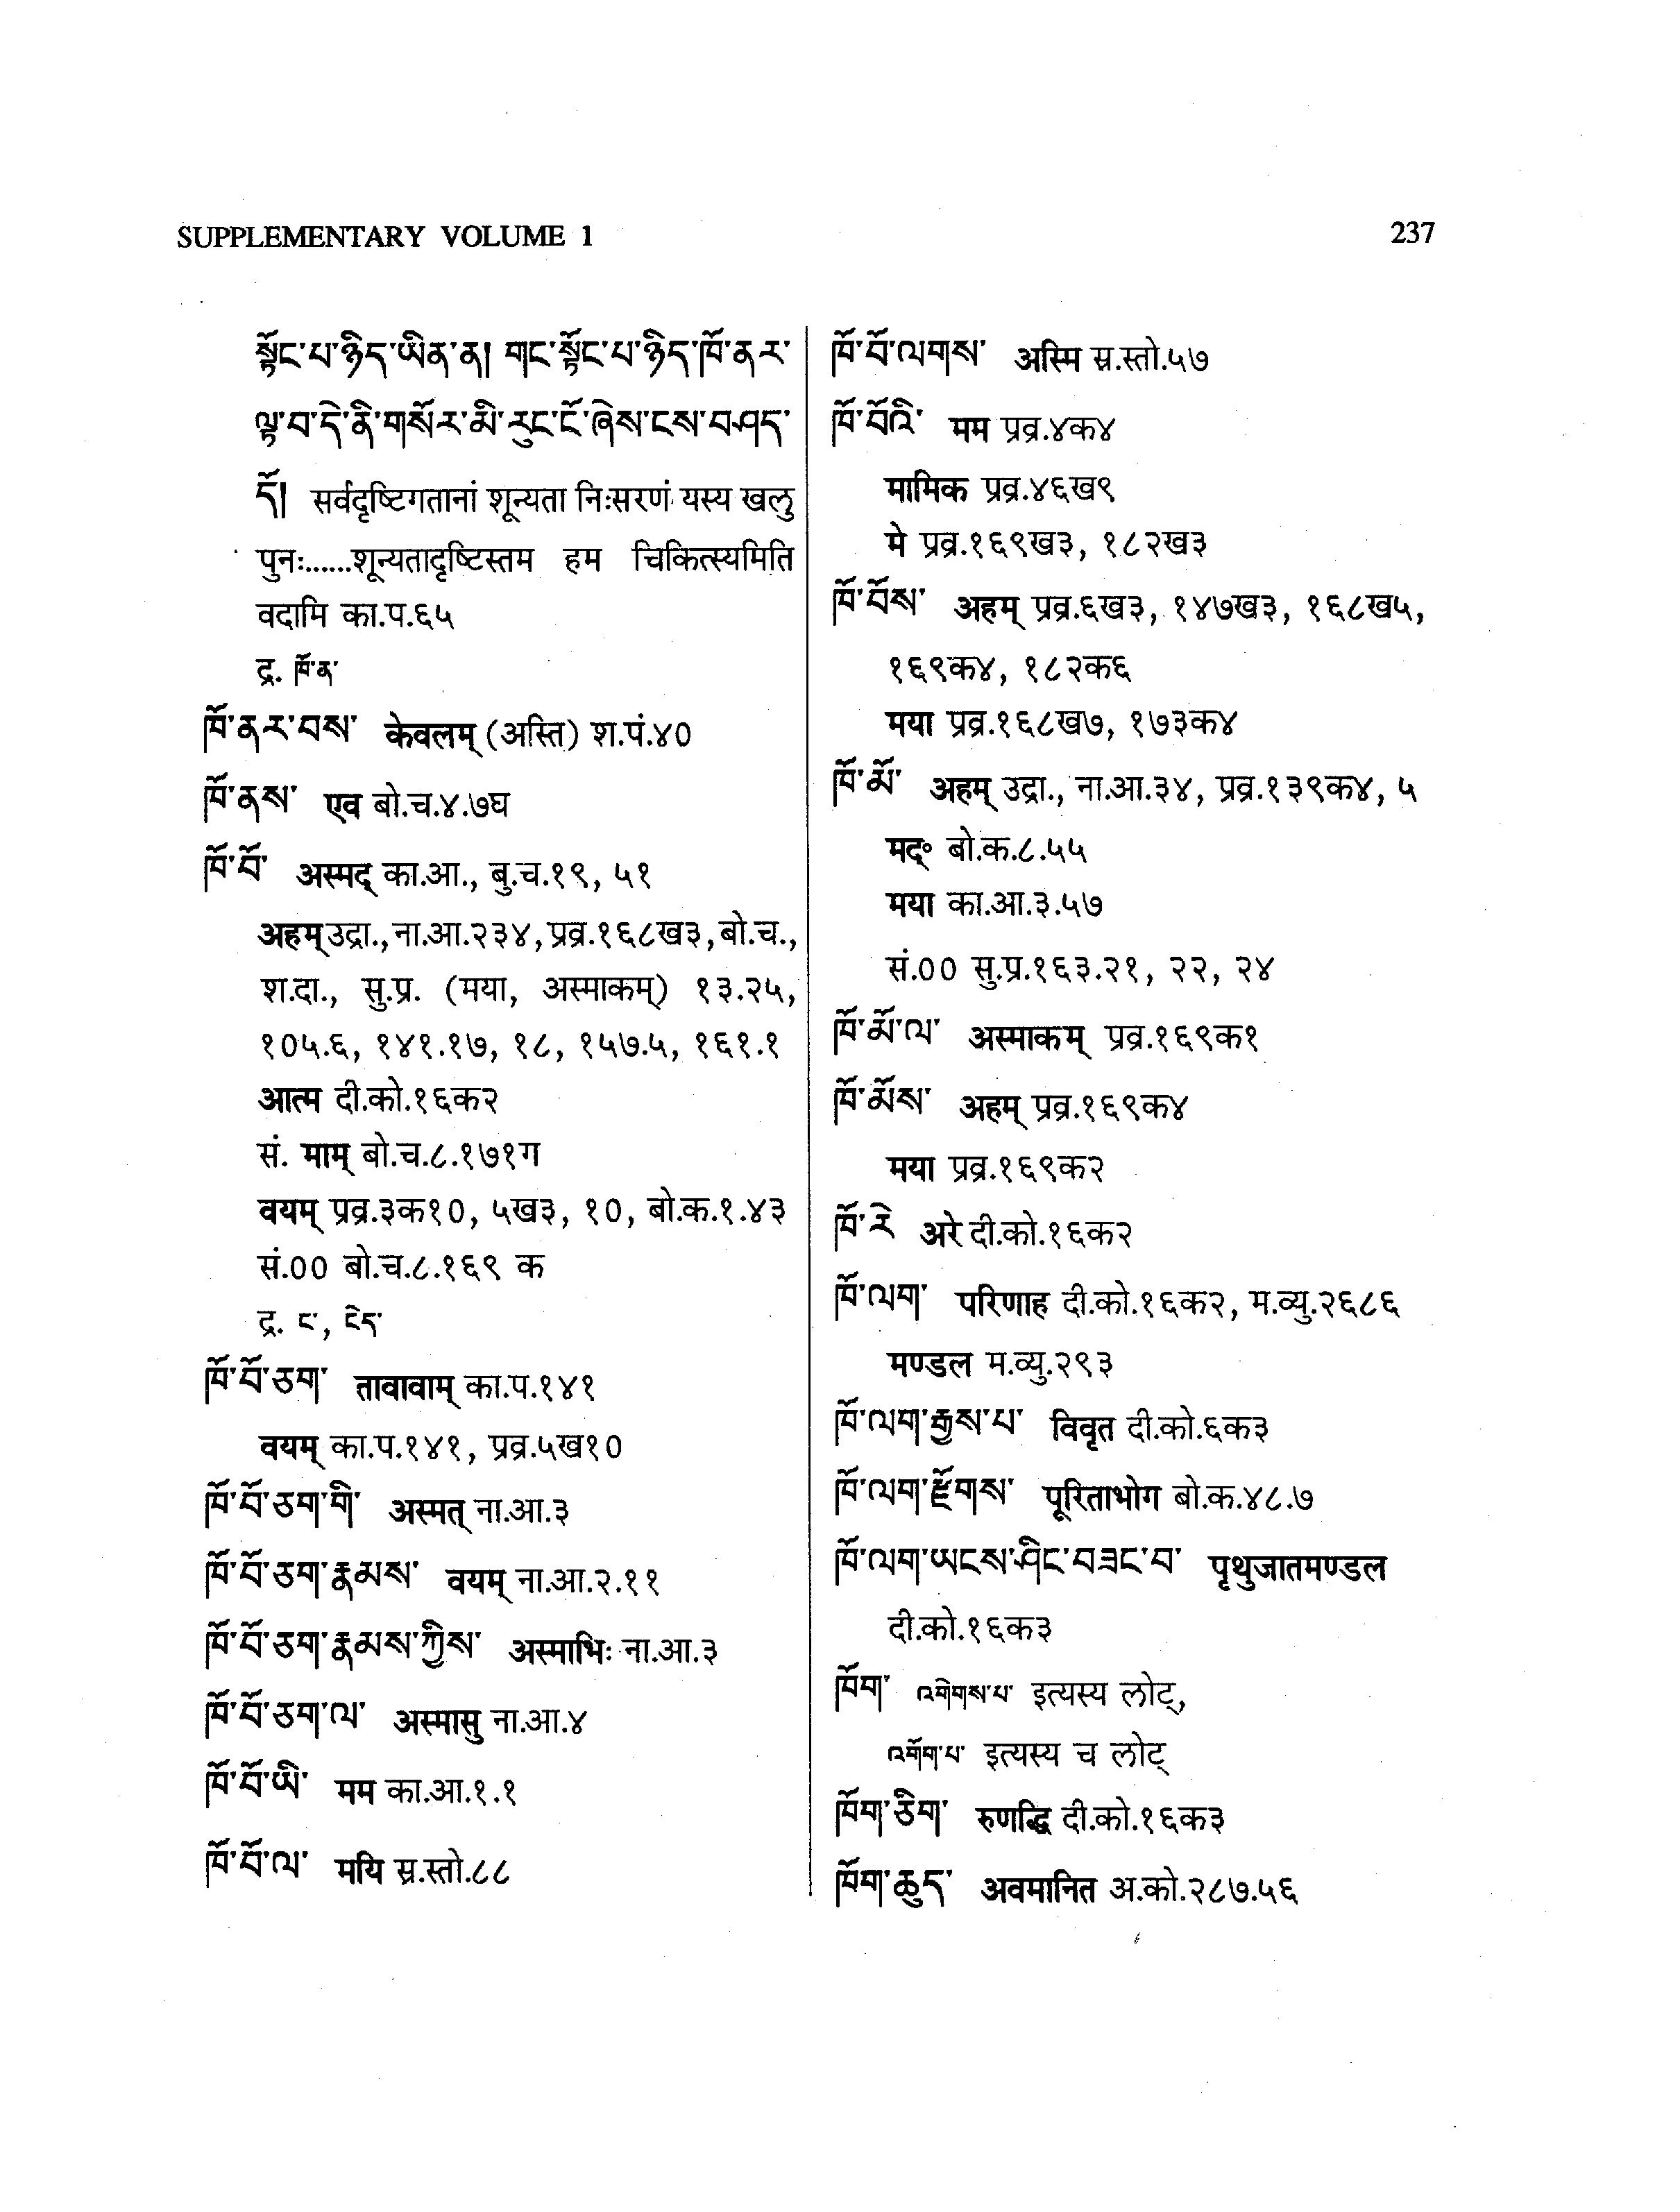 SUPPLEMENTARY VOLUME 1
237
སྟོང་པ་ཉིད་ཡིན་ན། གང་སྟོང་པ་ཉིད་ཁོ་ནར་
ལྟ་བ་དེ་ནི་གསོར་མི་རུང་ངོ་ཞེས་ངས་བཤད་
དོ། सर्वदृष्टिगतानां शून्यता निःसरणं यस्य खलु
पुनः......शून्यतादृष्टिस्तम हम चिकित्स्यमिति
वदामि का.प.६५
द्र. ཁོ་ན་
ཁོ་ནར་བས་ केवलम् (अस्ति) श.पं.४०
ཁོ་ནས་ एव बो.च.४.७घ
ཁོ་བོ་ अस्मद् का.आ., बु.च.१९, ५१
अहम् उद्रा., ना.आ.२३४, प्रव्र.१६८ख३, बो.च.,
श.दा., सु.प्र. (मया, अस्माकम्) १३.२५,
१०५.६, १४१.१७, १८, १५७.५, १६१.१
आत्म दी.को.१६क२
सं. माम् बो.च.८.१७१ग
वयम् प्रव्र.३क१०, ५ख३, १०, बो.क.१.४३
सं.०० बो.च.८.१६९ क
द्र. ང་, ངེད་
ཁོ་བོ་ཅག་ तावावाम् का.प.१४१
वयम् का.प.१४१, प्रव्र.५ख१०
ཁོ་བོ་ཅག་གི་ अस्मत् ना.आ.३
ཁོ་བོ་ཅག་རྣམས་ वयम् ना.आ.२.११
ཁོ་བོ་ཅག་རྣམས་ཀྱིས་ अस्माभिः ना.आ.३
ཁོ་བོ་ཅག་ལ་ अस्मासु ना.आ.४
ཁོ་བོ་ཡི་ मम का.आ.१.१
ཁོ་བོ་ལ་ मयि स्र.स्तो.८८
ཁོ་བོ་ལགས་ अस्मि स्र.स्तो.५७
ཁོ་བོའི་ मम प्रव्र.४क४
मामिक प्रव्र.४६ख९
मे प्रव्र.१६९ख३, १८२ख३
ཁོ་བོས་ अहम् प्रव्र.६ख३, १४७ख३, १६८ख५,
१६९क४, १८२क६
मया प्रव्र.१६८ख७, १७३क४
ཁོ་མོ་ अहम् उद्रा., ना.आ.३४, प्रव्र.१३९क४, ५
मद्॰ बो.क.८.५५
मया का.आ.३.५७
सं.०० सु.प्र.१६३.२१, २२, २४
ཁོ་མོ་ལ་ अस्माकम् प्रव्र.१६९क१
ཁོ་མོས་ अहम् प्रव्र.१६९क४
मया प्रव्र.१६९क२
ཁོ་རེ अरे दी.को.१६क२
ཁོ་ལག་ परिणाह दी.को.१६क२, म.व्यु.२६८६
मण्डल म.व्यु.२९३
ཁོ་ལག་རྒྱས་པ་ विवृत दी.को.६क३
ཁོ་ལག་རྫོགས་ पूरिताभोग बो.क.४८.७
ཁོ་ལག་ཡངས་ཤིང་བཟང་བ་ पृथुजातमण्डल
दी.को.१६क३
ཁོག་ འགེགས་པ་ इत्यस्य लोट्,
འགོག་པ་ इत्यस्य च लोट्
ཁོག་ཅིག་ रुणद्धि दी.को.१६क३
ཁོག་ཆུད་ अवमानित अ.को.२८७.५६